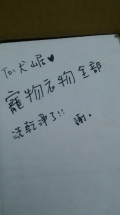 To: 犬崛♥
寵物衣物全部
洗乾淨了!! 謝。